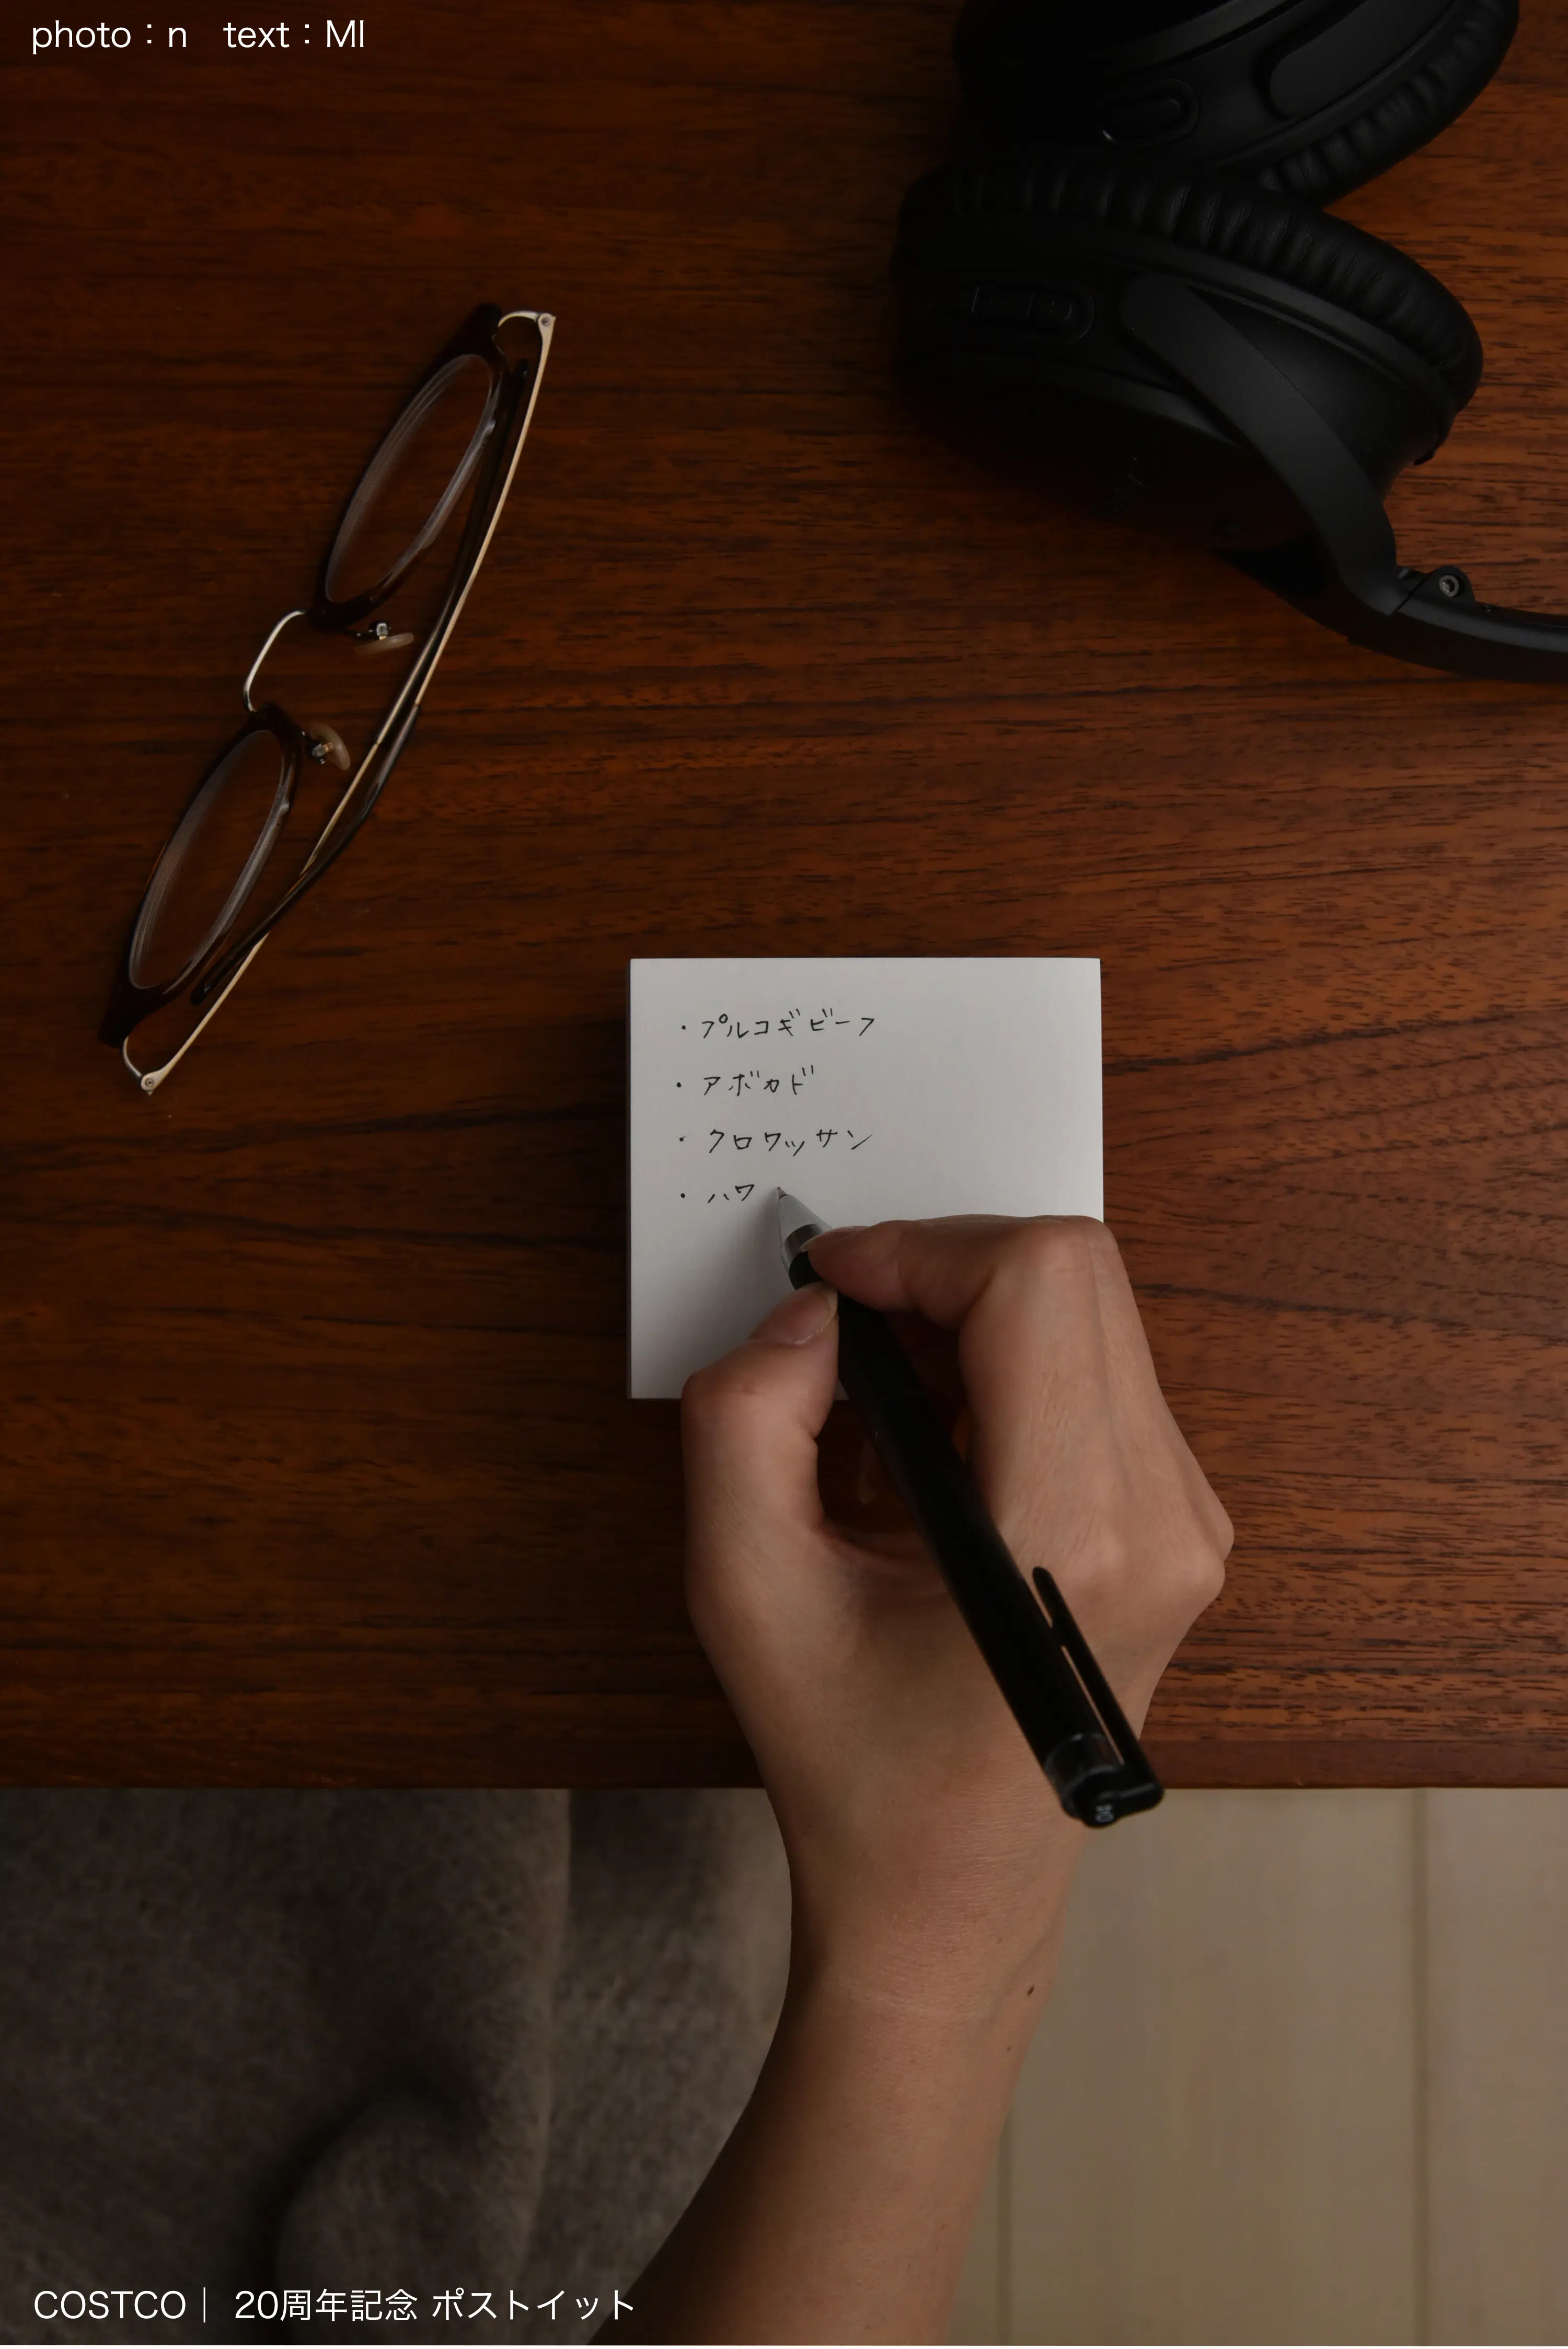 photo：n　text：MI
・プルコギビーフ
・アボカド
・クロワッサン
・ハワ
COSTCO｜ 20周年記念 ポストイット